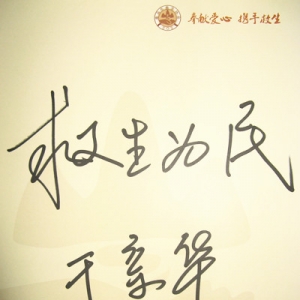 奉献爱心 携手救生
救生为民
于京华